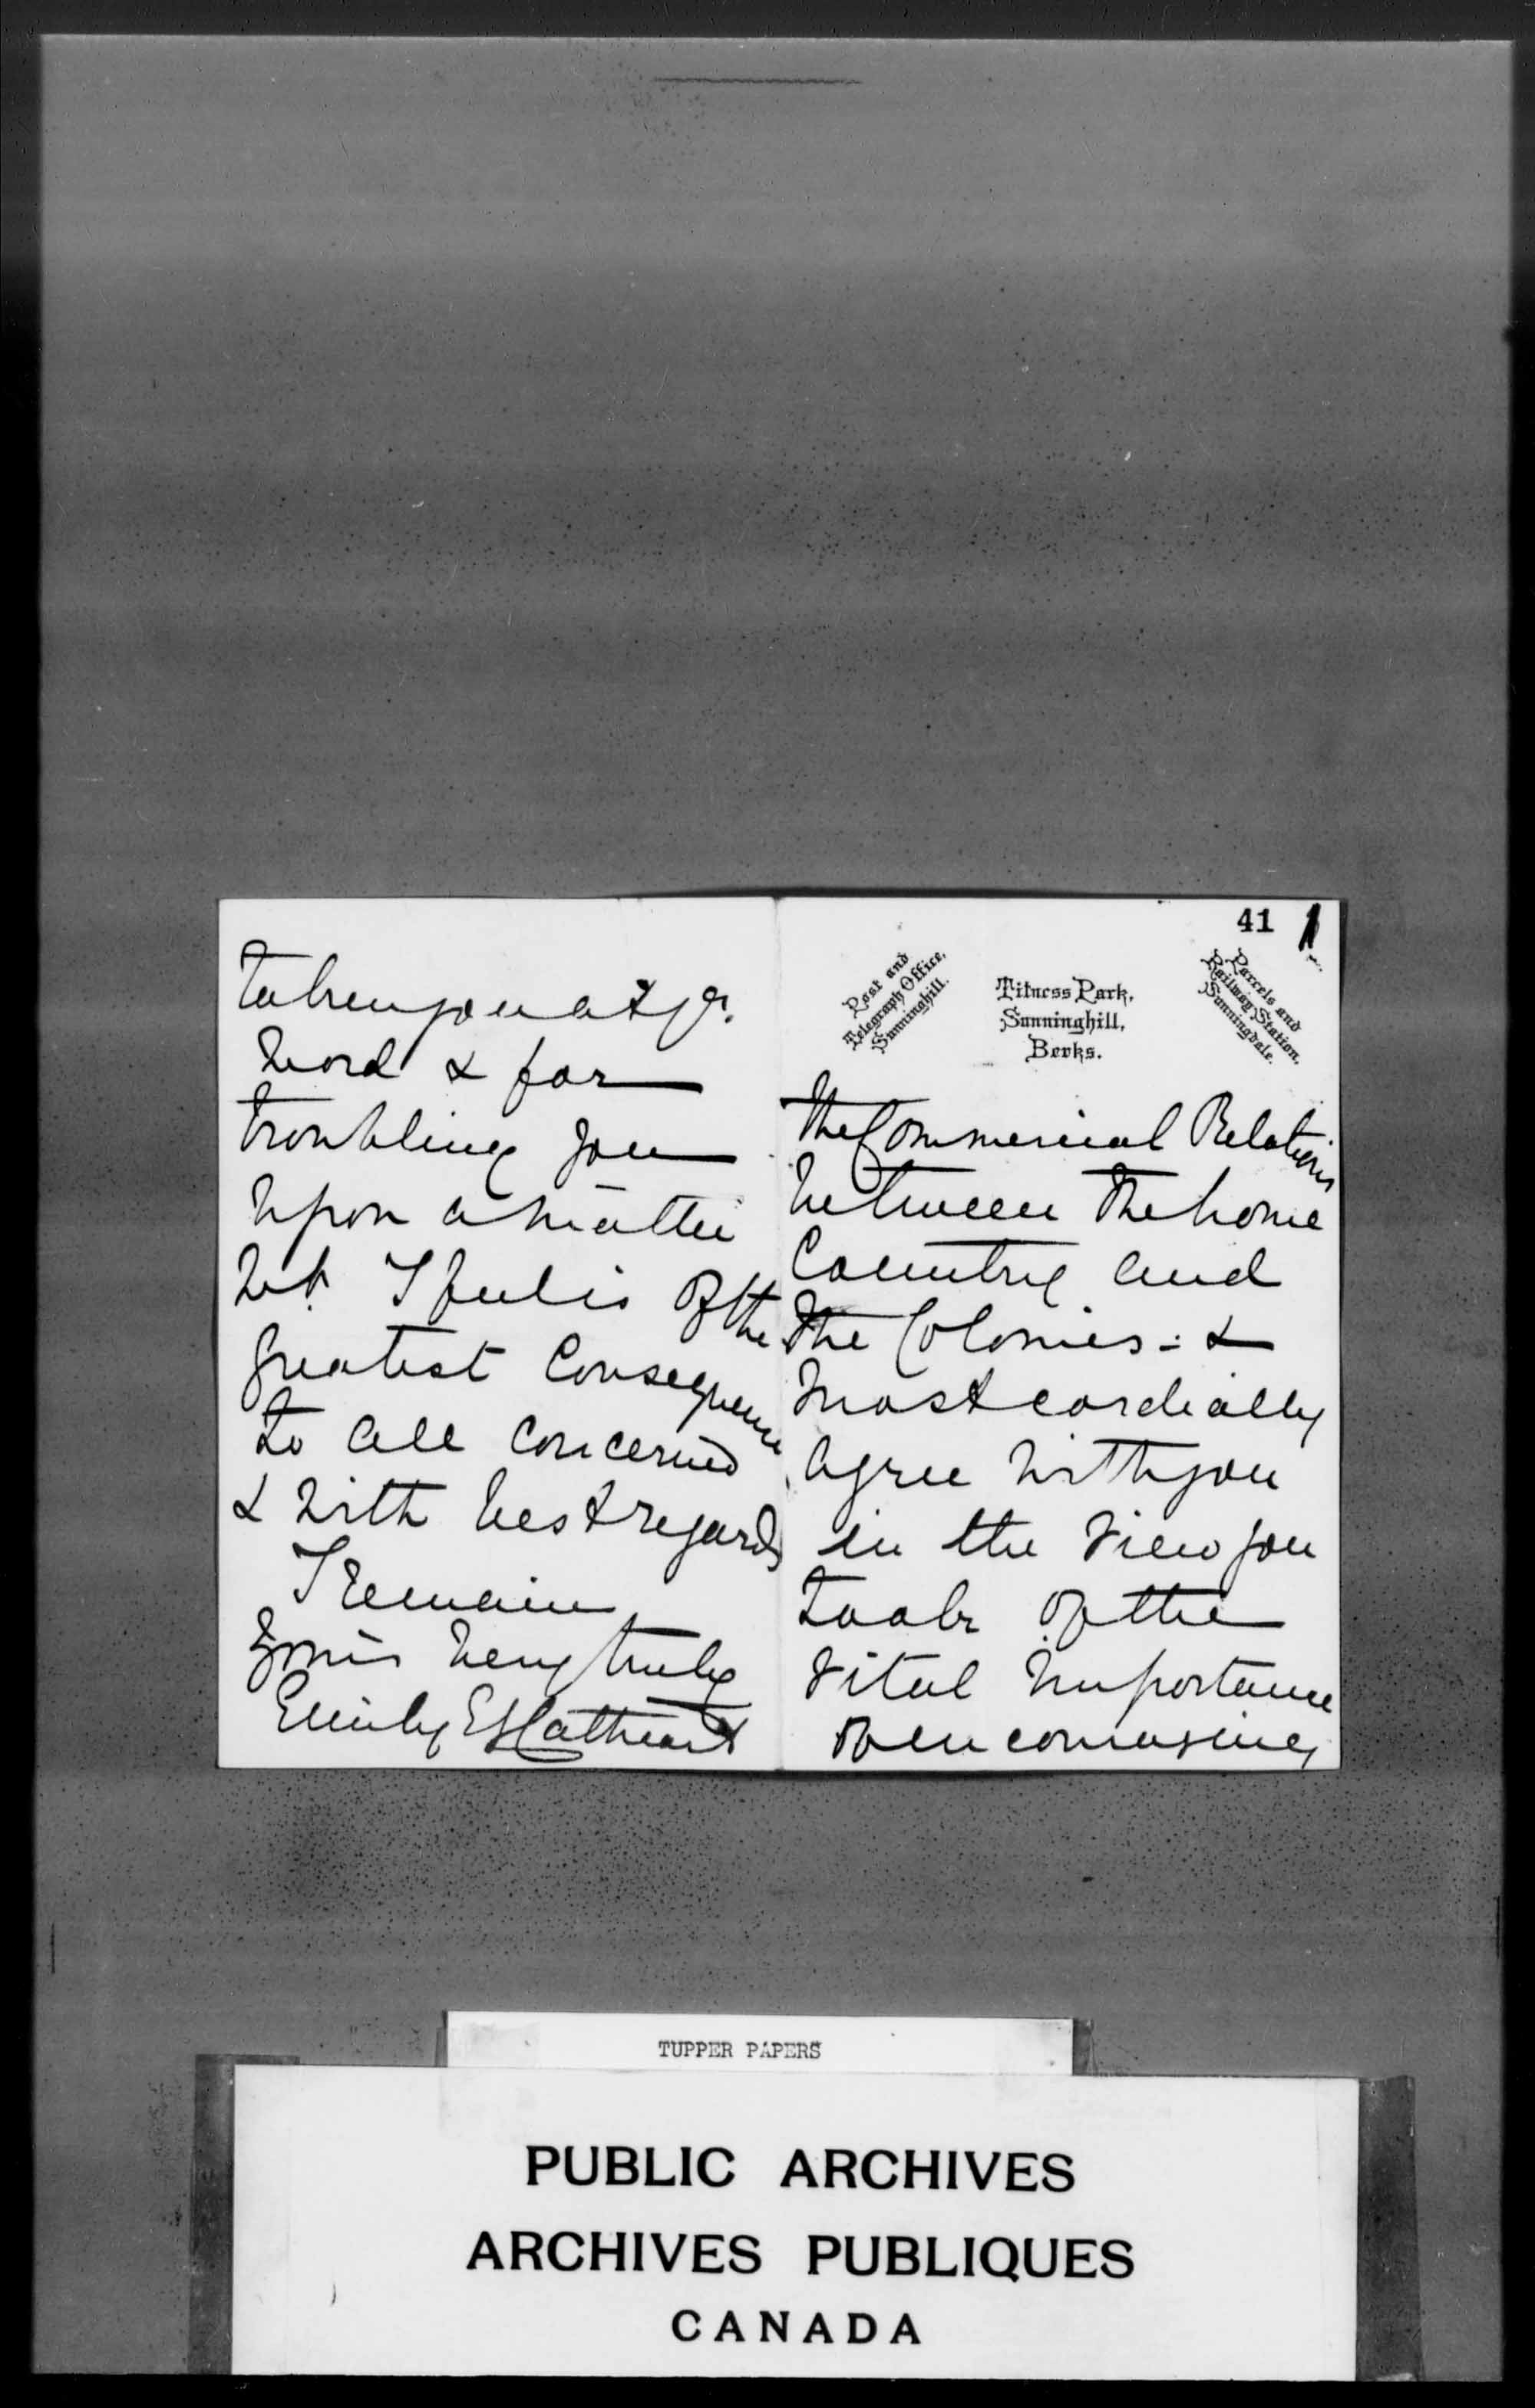 taken you at yr.
word & for
troubling you
upon a matter
wh. I feel is of the
greatest consequence
to all concerned
& with best regards
I remain
Yours very truly
Emily E G Cathcart
41
Post and
Telegraph Office,
Sunninghill.
Titness Park,
Sunninghill,
Berks.
Parcels and
Railway Station,
Sunningdale.
The Commercial Relations
between the home
Country and
the Colonies: &
most cordially
agree with you
in the view you
took of the
vital importance
of encouraging
TUPPER PAPERS
PUBLIC ARCHIVES
ARCHIVES PUBLIQUES
CANADA